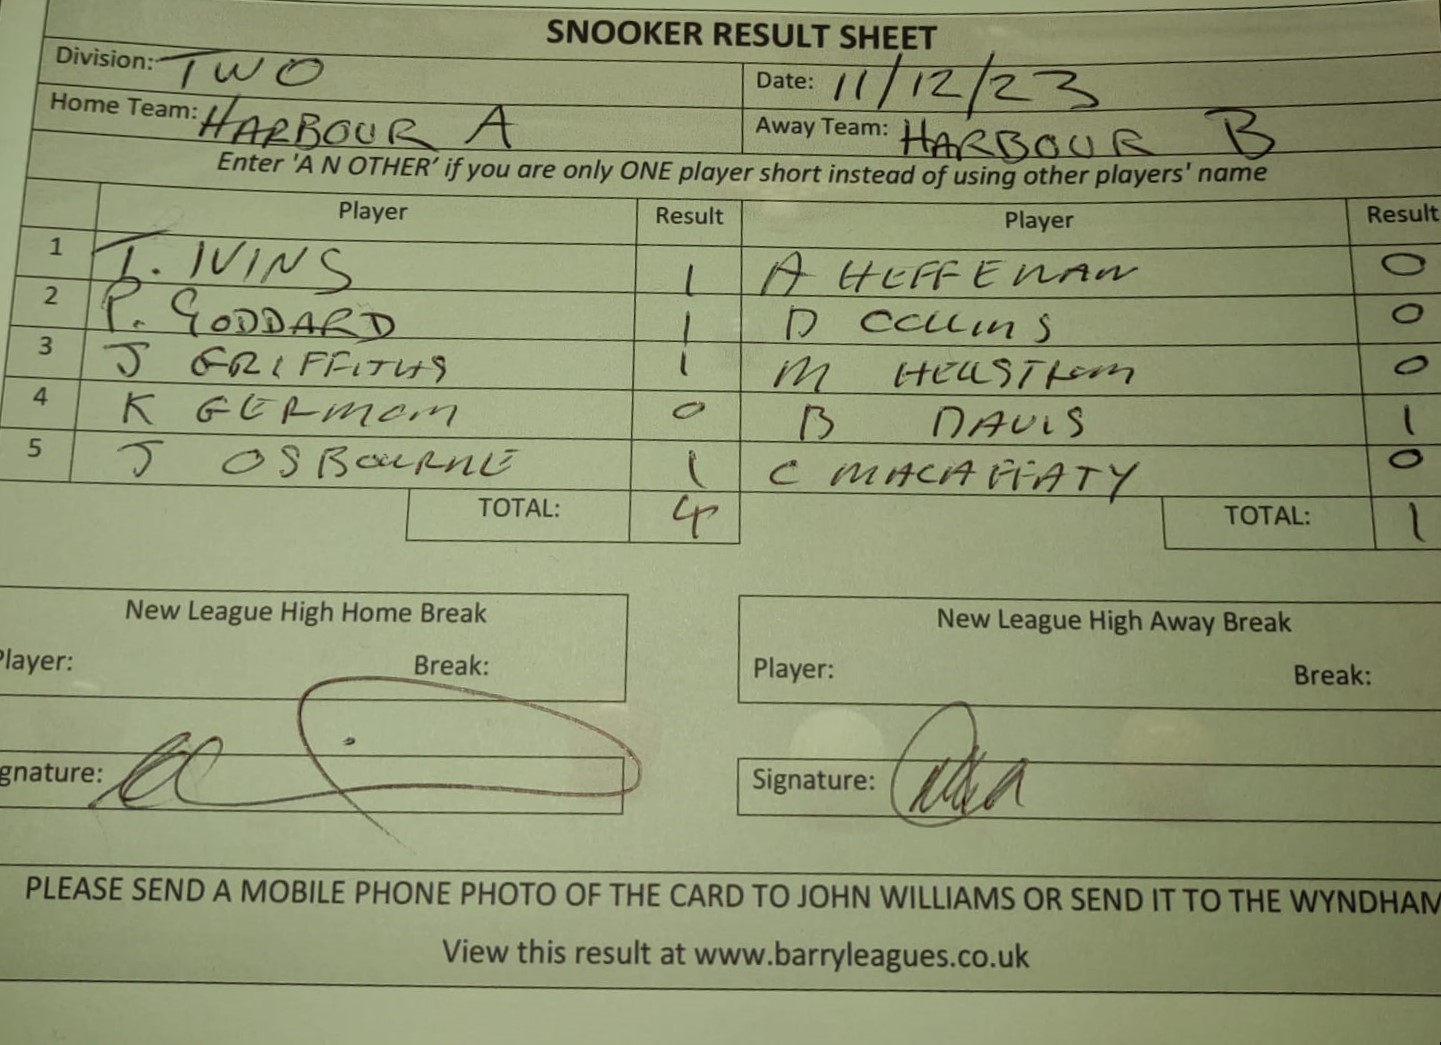 SNOOKER RESULT SHEET
Division: TWO Date: 11/12/23
Home Team: HARBOUR A Away Team: HARBOUR B
Enter 'A N OTHER' if you are only ONE player short instead of using other players' name
Player Result Player Result
1 T. IVINS 1 A HEFFENAN 0
2 P. GODDARD 1 D COLLINS 0
3 J GRIFFITHS 1 M HELLSTROM 0
4 K GERMOM 0 B DAVIS 1
5 J OSBOURNE 1 C MACAFFATY 0
TOTAL: 4 TOTAL: 1
New League High Home Break New League High Away Break
Player: Break: Player: Break:
gnature: Signature:
PLEASE SEND A MOBILE PHONE PHOTO OF THE CARD TO JOHN WILLIAMS OR SEND IT TO THE WYNDHAM
View this result at www.barryleagues.co.uk